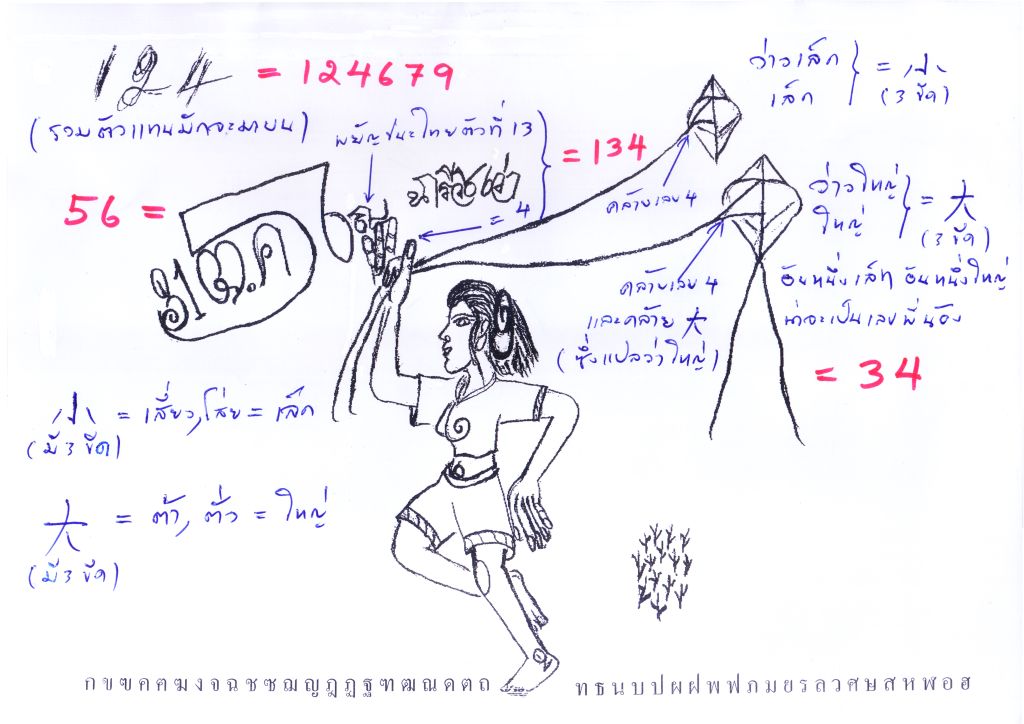 124 = 124679
(รวมตัวแทนมักจะมาบน)
พยัญชนะไทยตัวที่ 13
= 134
= 4
56 =
ว่าวเล็ก
เล็ก
= 小
(3 ขีด)
คล้ายเลข 4
ว่าวใหญ่
ใหญ่
= 大
(3 ขีด)
คล้ายเลข 4
และคล้าย 大
(ซึ่งแปลว่าใหญ่)
อันหนึ่งเล็ก อันหนึ่งใหญ่
น่าจะเป็นเลขพี่น้อง
= 34
小 = เสี่ยว, โส่ย = เล็ก
(มี 3 ขีด)
大 = ต้า, ตั่ว = ใหญ่
(มี 3 ขีด)
ก ข ฃ ค ฅ ฆ ง จ ฉ ช ซ ฌ ญ ฎ ฏ ฐ ฑ ฒ ณ ด ต ถ ท ธ น บ ป ผ ฝ พ ฟ ภ ม ย ร ล ว ศ ษ ส ห ฬ อ ฮ